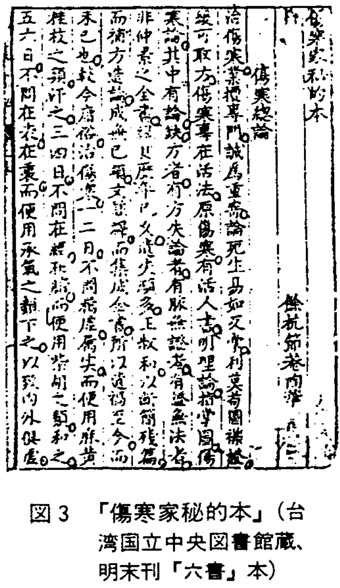 傷寒家秘的本
餘杭節菴陶華
傷寒總論
治傷寒業擅專門誠爲重寄論死生易如反掌利莫若圖機證
緩可取方傷寒專在活法原傷寒有活人書明理論指掌圖傷
寒論其中有論缺方者有方失論者有脉無證者有證無法者
非仲景之全書經歷年已久遺失頗多王叔和以斷簡殘篇
而補方造論成無已順文註釋而集成全書所以遺禍至今而
未已也於今庸俗治傷寒一二日不問屬虛屬實而便用麻黃
桂枝之類汗之三四日不問在經在腑而便用柴胡之類和之
五六日不問在表在裏而便用承氣之類下之以致内外俱虛
図3 「傷寒家秘的本」（台
湾国立中央図書館蔵、
明末刊『六書』本）